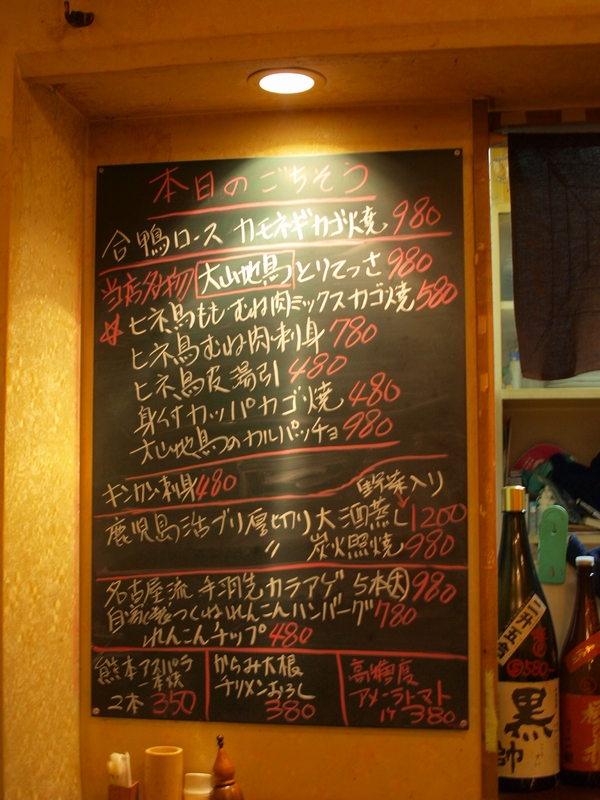 本日のごちそう
合鴨ロース カモネギカゴ焼 980
当店名物 大山地鳥 とりてっさ 980
ヒネ鳥ももむね肉ミックスカゴ焼 580
ヒネ鳥むね肉刺身 780
ヒネ鳥皮湯引 480
身付カッパカゴ焼 480
大山地鳥のカルパッチョ 980
キンカン刺身 480
野菜入り
鹿児島活ブリ厚切り大酒蒸し 1200
〃 炭火照焼 980
名古屋流 手羽先カラアゲ 5本 大 980
自家製つくねれんこんハンバーグ 780
れんこんチップ 480
熊本アスパラ
一本焼
2本 350
からみ大根
チリメンおろし
380
高糖度
アメーラトマト
1ケ 380
二升五合
580
黒
帥